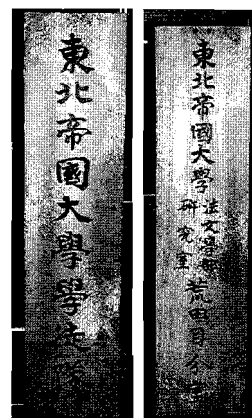 東北帝國大學學友會
東北帝國大學
法文學部
研究室
荒田目分室